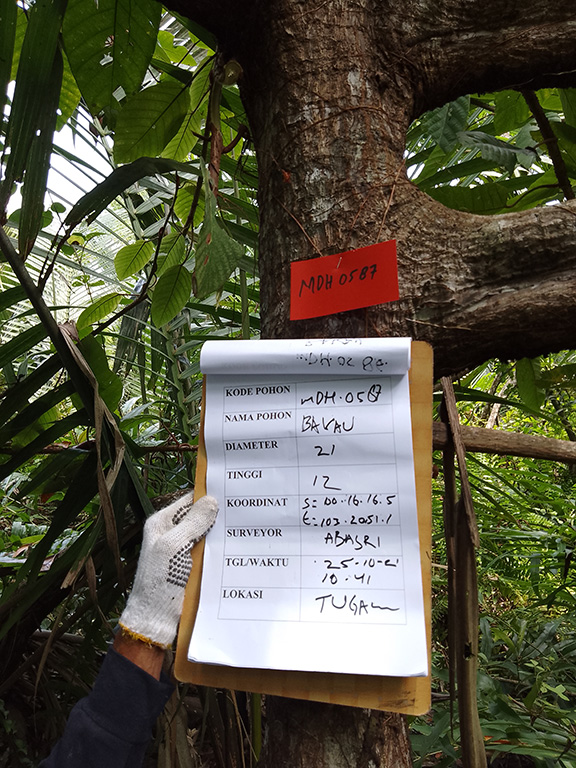 MDH 0587
KODE POHON MDH.0587
NAMA POHON BAKAU
DIAMETER 21
TINGGI 12
KOORDINAT S=00.16.16.5
E=103.2051.1
SURVEYOR ABASRI
TGL/WAKTU 25-10-21
10.41
LOKASI TUGAU